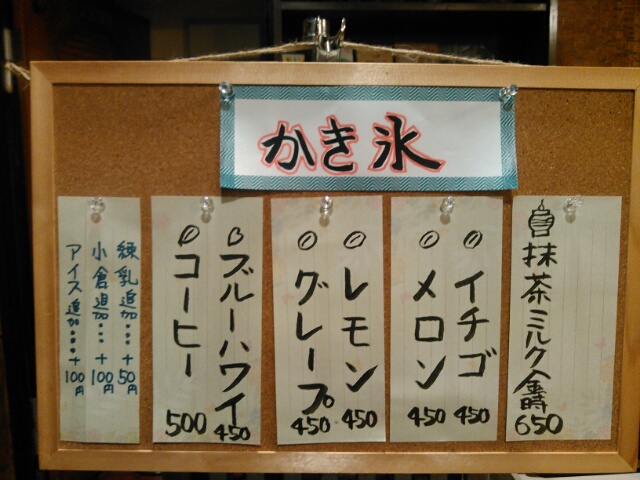 かき氷
抹茶ミルク金時
650
イチゴ
450
メロン
450
レモン
450
グレープ
450
ブルーハワイ
450
コーヒー
500
練乳追加・・・+50円
小倉追加・・・+100円
アイス追加・・・+100円